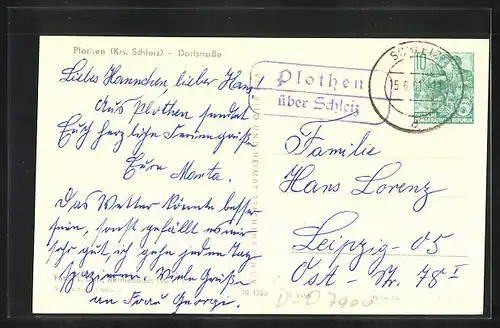 Plothen (Krs. Schleiz) - Dorfstraße
Liebes Hannchen, lieber Hans
Aus Plothen sendet
Euch herzliche Feriengrüße
Eure Marta.
Das Wetter könnte besser
sein, sonst gefällt es mir
sehr gut, ich gehe jeden Tag
spazieren. Viele Grüße
an Frau Georgi.
Plothen
über Schleiz
SCHLEIZ
15.6.
10
DEMOKRATISCHE REPUBLIK
BILD UND HEIMAT
Familie
Hans Lorenz
Leipzig-O5
Ost-Str. 78 I